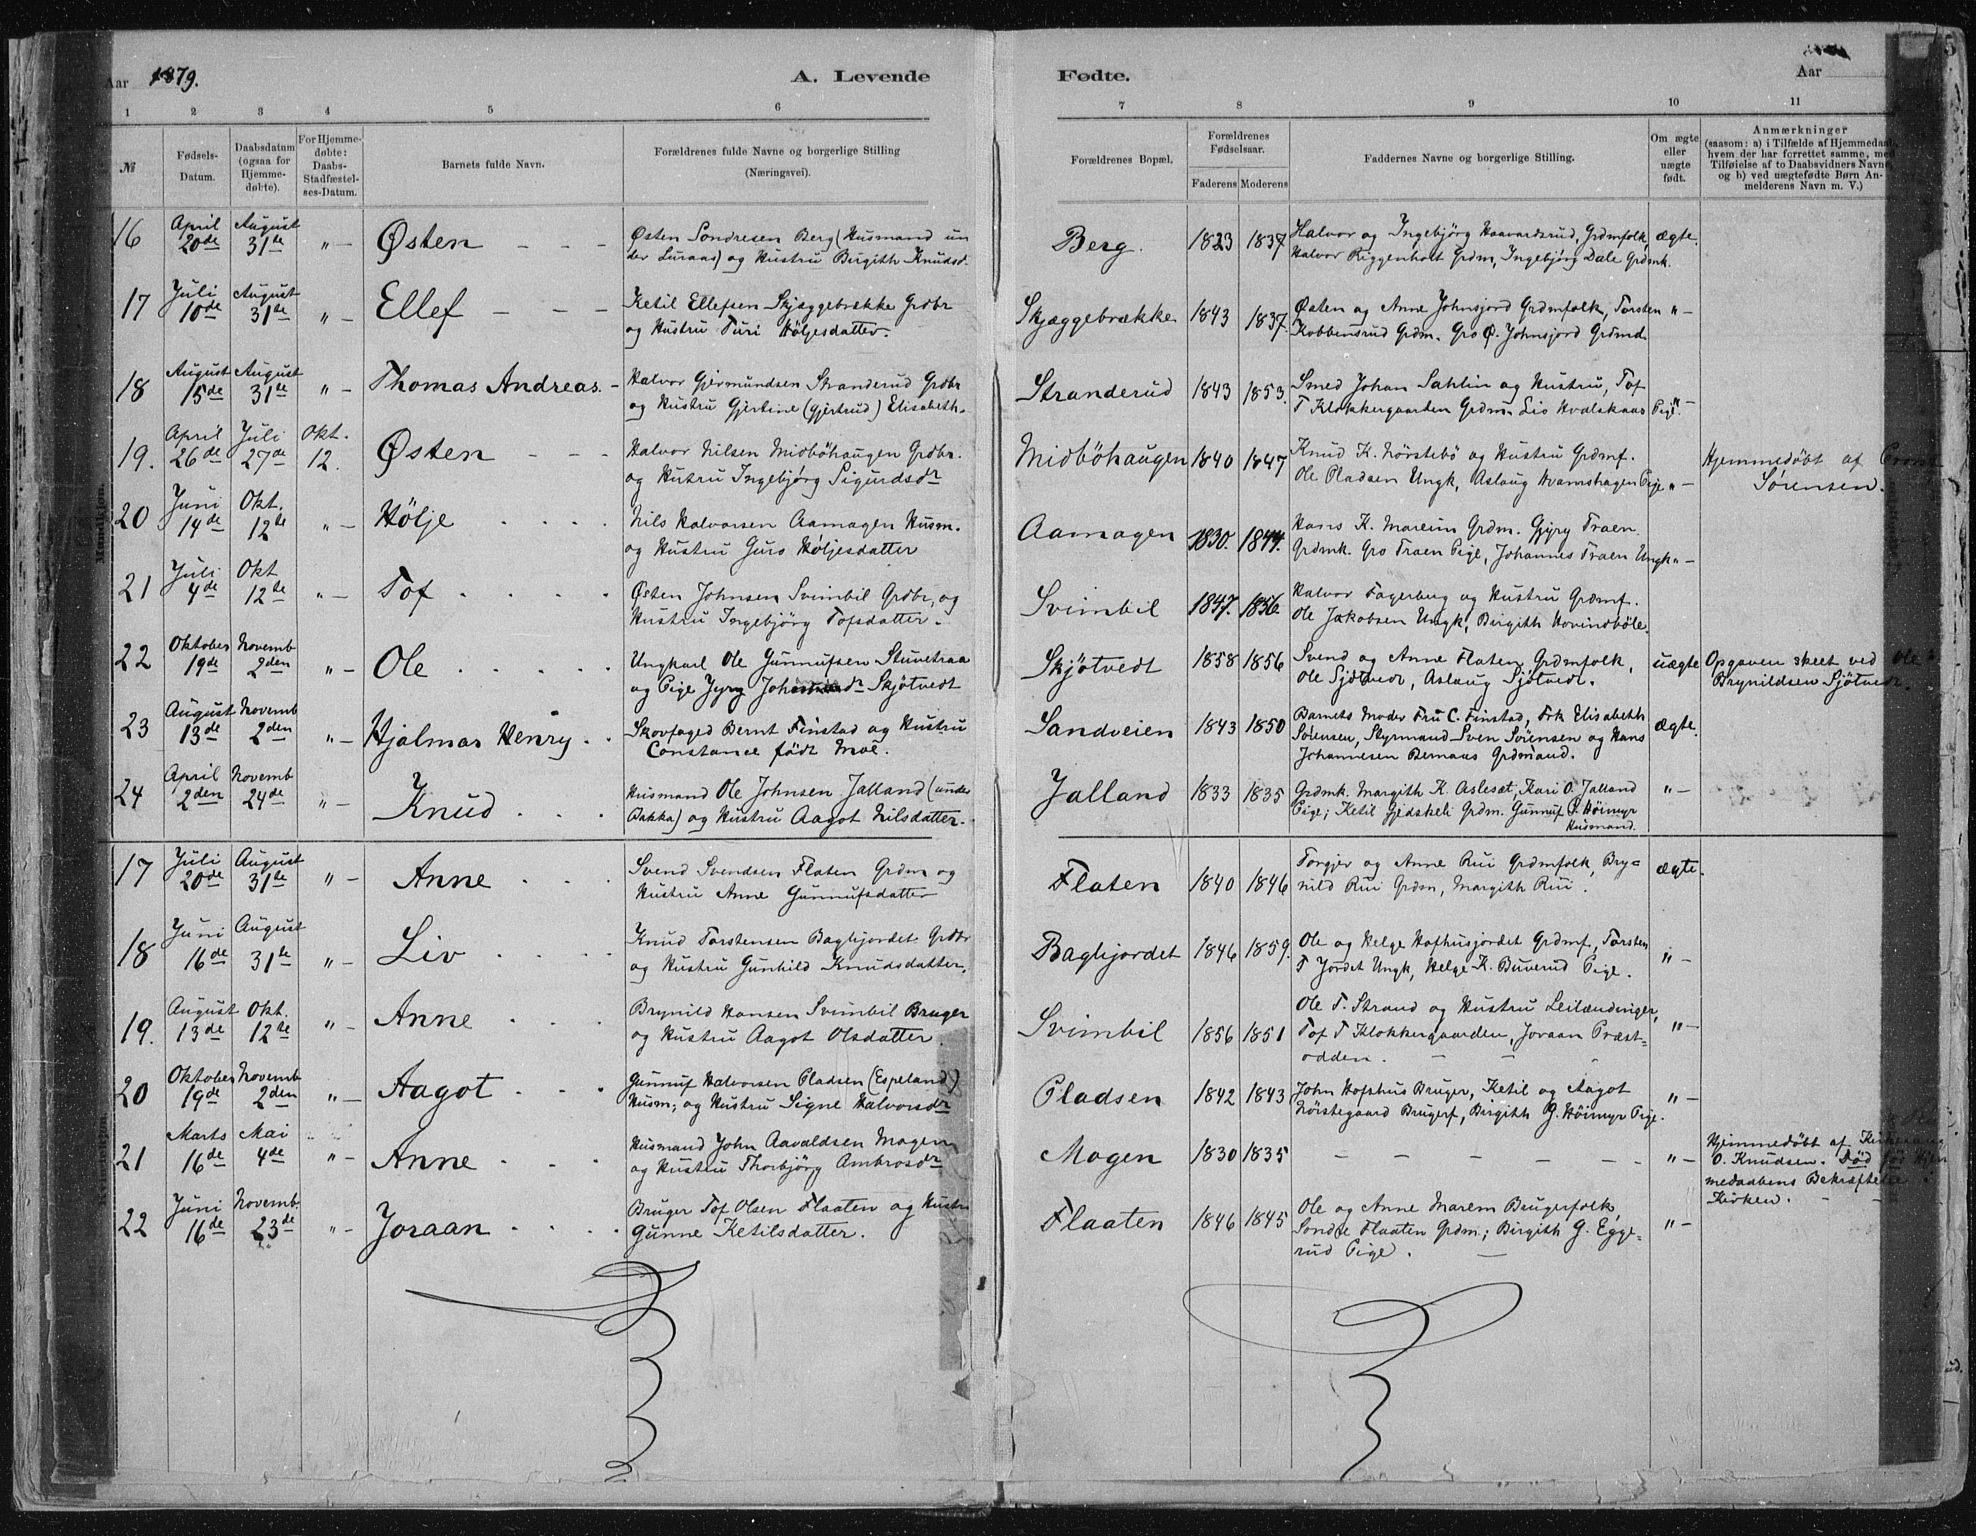 Aar 1879.
A. Levende
Fødte.
Aar
1 2 3 4 5 6 7 8 9 10 11
№
Fødsels-Datum.
Daabsdatum (ogsaa for Hjemme-døbte).
For Hjemme-døbte: Daabs-Stadfæstel-ses-Datum.
Barnets fulde Navn.
Forældrenes fulde Navne og borgerlige Stilling (Næringsvei).
Forældrenes Bopæl.
Forældrenes Fødselsaar.
Faderens Moderens
Faddernes Navne og borgerlige Stilling.
Om ægte eller uægte født.
Anmærkninger
(saasom: a) i Tilfælde af Hjemmedaab,
hvem der har forrettet samme, med
Tilføielse af to Daabsvidners Navne,
og b) ved uægtefødte Børn An-
melderens Navn m. V.)
16 April 20de August 31te „ – Østen – – –
Østen Sondresen Berg (Husmand un
der Luraas) og Hustru Birgith Knudsd.
Berg. 1823 1837
Halvor og Ingebjørg Haavardsrud, Grdmfolk, ægte.
Halvor Riggenholt Grdm, Ingebjørg Dale Grdmk.
17 Juli 10de August 31te „ – Ellef – – –
Ketil Ellefsen Skjæggebrække Grdbr
og Hustru Turi Høljesdatter.
Skjæggebrække 1843 1837.
Østen og Anne Johnsjord Grdmfolk, Torsten „ –
Kobbensrud Grdm. Gro Ø. Johnsjord Grdmd.
18 August 15de August 31te „ – Thomas Andreas. –
Halvor Giermundsen Stranderud Grdbr
og Hustru Gjertine (Gjertrud) Elisabeth.
Stranderud 1843 1853.
Smed Johan Sahlin og Hustru, Tof
T Klokkergaarden Grdm. Liv Hvalskaas Pige. „ –
19. April 26de Juli 27de Okt. 12. Østen – – –
Halvor Nilsen Midbøhaugen Grdbr.
og Hustru Ingebjørg Sigurdsdr
Midbøhaugen 1840 1847
Knud K. Nørstebø og Hustru Grdmf.
Ole Pladsen Ungk, Aslaug Hvamshagen Pige „ –
Hjemmedøbt af Provst
Sørensen.
20 Juni 14de Okt. 12te „ – Hølje . . . .
Nils Halvorsen Aamagen Husm.
og Hustru Guro Høljesdatter
Aamagen 1830. 1844.
Hans K. Mareim Grdm. Gjyry Traen
Grdmk. Gro Traen Pige, Johannes Traen Ungk „ –
21 Juli 4de Okt 12te „ – Tof . . . .
Østen Johnsen Svimbil Grdbr, og
Hustru Ingebjørg Tofsdatter.
Svimbil 1847. 1856.
Halvor Fagerberg og Hustru Grdmf.
Ole Jakobsen Ungk, Birgith Hovindbøle.
22 Oktober 19de Novemb 2den „ – Ole . . . .
Ungkarl Ole Gunnufsen Stuvetraa
og Pige Jyry Skjøtvedt
Skjøtvedt 1858 1856
Svend og Anne Flaten, Grdmfolk,
Ole Sjøtvedt, Aslaug Sjøtvedt.
uægte
Opgaven skeet ved Ole
Brynildsen Sjøtvedt.
23 August 13de Novemb 2den „ – Hjalmar Henry . .
Skovfoged Bernt Finstad og Hustru
Constance født Moe.
Sandveien 1843 1850
Barnets Moder Fru C. Finstad, Frk Elisabeth
Sørensen, Styrmand Sven Sørensen og Hans
Johannesen Bernaas Grdmand.
ægte.
24 April 2den Novemb 24de „ – Knud . . .
Husmand Ole Johnsen Jalland (under
Bakka) og Hustru Aagot Nilsdatter.
Jalland 1833 1835
Grdmk. Margith K. Aslesæt, Kari O. Jalland
Pige; Ketil Gjedskeli Grdm. Gunnuf P. Høimyr
Husmand.
„ –
17 Juli 20de August 31te „ – Anne . . .
Svend Svendsen Flaten Grdm og
Hustru Anne Gunnufsdatter
Flaten 1840 1846
Torgjer og Anne Rui Grdmfolk, Bry=
nild Rui Grdm, Margith Rui.
ægte.
18 Juni 16de August 31te „ – Liv . . . .
Knud Torstensen Baglijordet Grdbr
og Hustru Gunhild Knudsdatter.
Baglijordet 1846 1859.
Ole og Helge Hofhusjordet Grdmf, Torsten
T Jordet Ungk, Helge K. Buverud Pige.
„ –
19. August 13de Okt. 12te „ – Anne . . .
Brynild Hansen Svimbil Bruger
og Hustru Aagot Olsdatter.
Svimbil 1856 1851
Ole T. Strand og Hustru Leilændinger,
Tof T Klokkergaarden, Joraan Præst-
odden. – – –
„ –
20 Oktober 19de Novemb 2den „ – Aagot . . .
Gunnuf Halvorsen Pladsen (Espeland)
Husm; og Hustru Signe Halvorsdr
Pladsen 1842 1843
John Hofshus Bruger, Ketil og Aagot
Nørstegaard Brugerf, Birgith G. Høimyr Pige.
„ –
21 Marts 16de Mai 4de „ – Anne . . .
Husmand John Aavaldsen Mogen
og Hustru Thorbjørg Ambrosdr
Mogen 1830 1835
– – – – – –
„ –
Hjemmedøbt af Kirkesang
O. Knudsen. Død før Hjem
medaabens Bekræftelse i
Kirken. – –
22 Juni 16de Novemb. 23de „ – Joraan . . . .
Bruger Tof Olsen Flaaten og Hustru
Gunne Ketilsdatter.
Flaaten 1846 1845
Ole og Anne Marem Brugerfolk,
Sondre Flaaten Grdm; Birgith G. Egge=
rud Pige. –
„ –